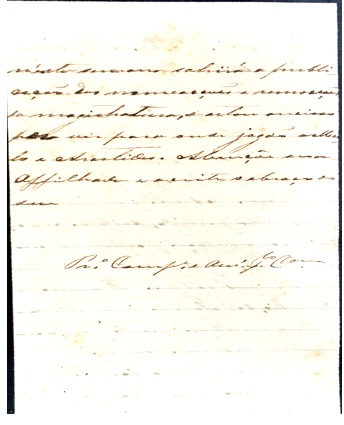 n'éste semana, sahirá a publi
cação das nomeacções e remocções,
da magistratura, e estou ancioso
para ver para onde jogão
e Aristides. Abençõe a sua
Affilhada e acceite o abraço do
seu
Prº Compe. e Amigº